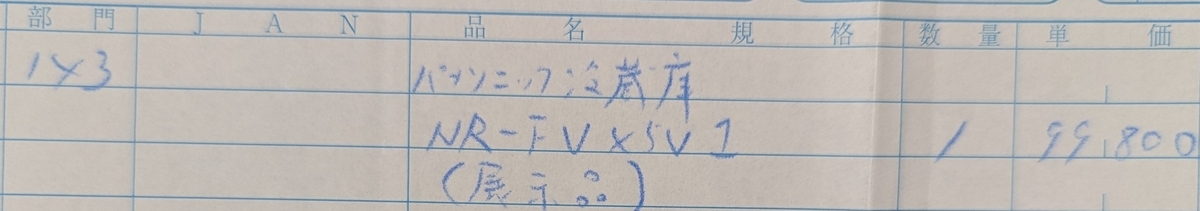 部門 JAN 品名 規格 数量 単価
143 パナソニック冷蔵庫
NR-FVX5V1 1 99,800
(展示品)